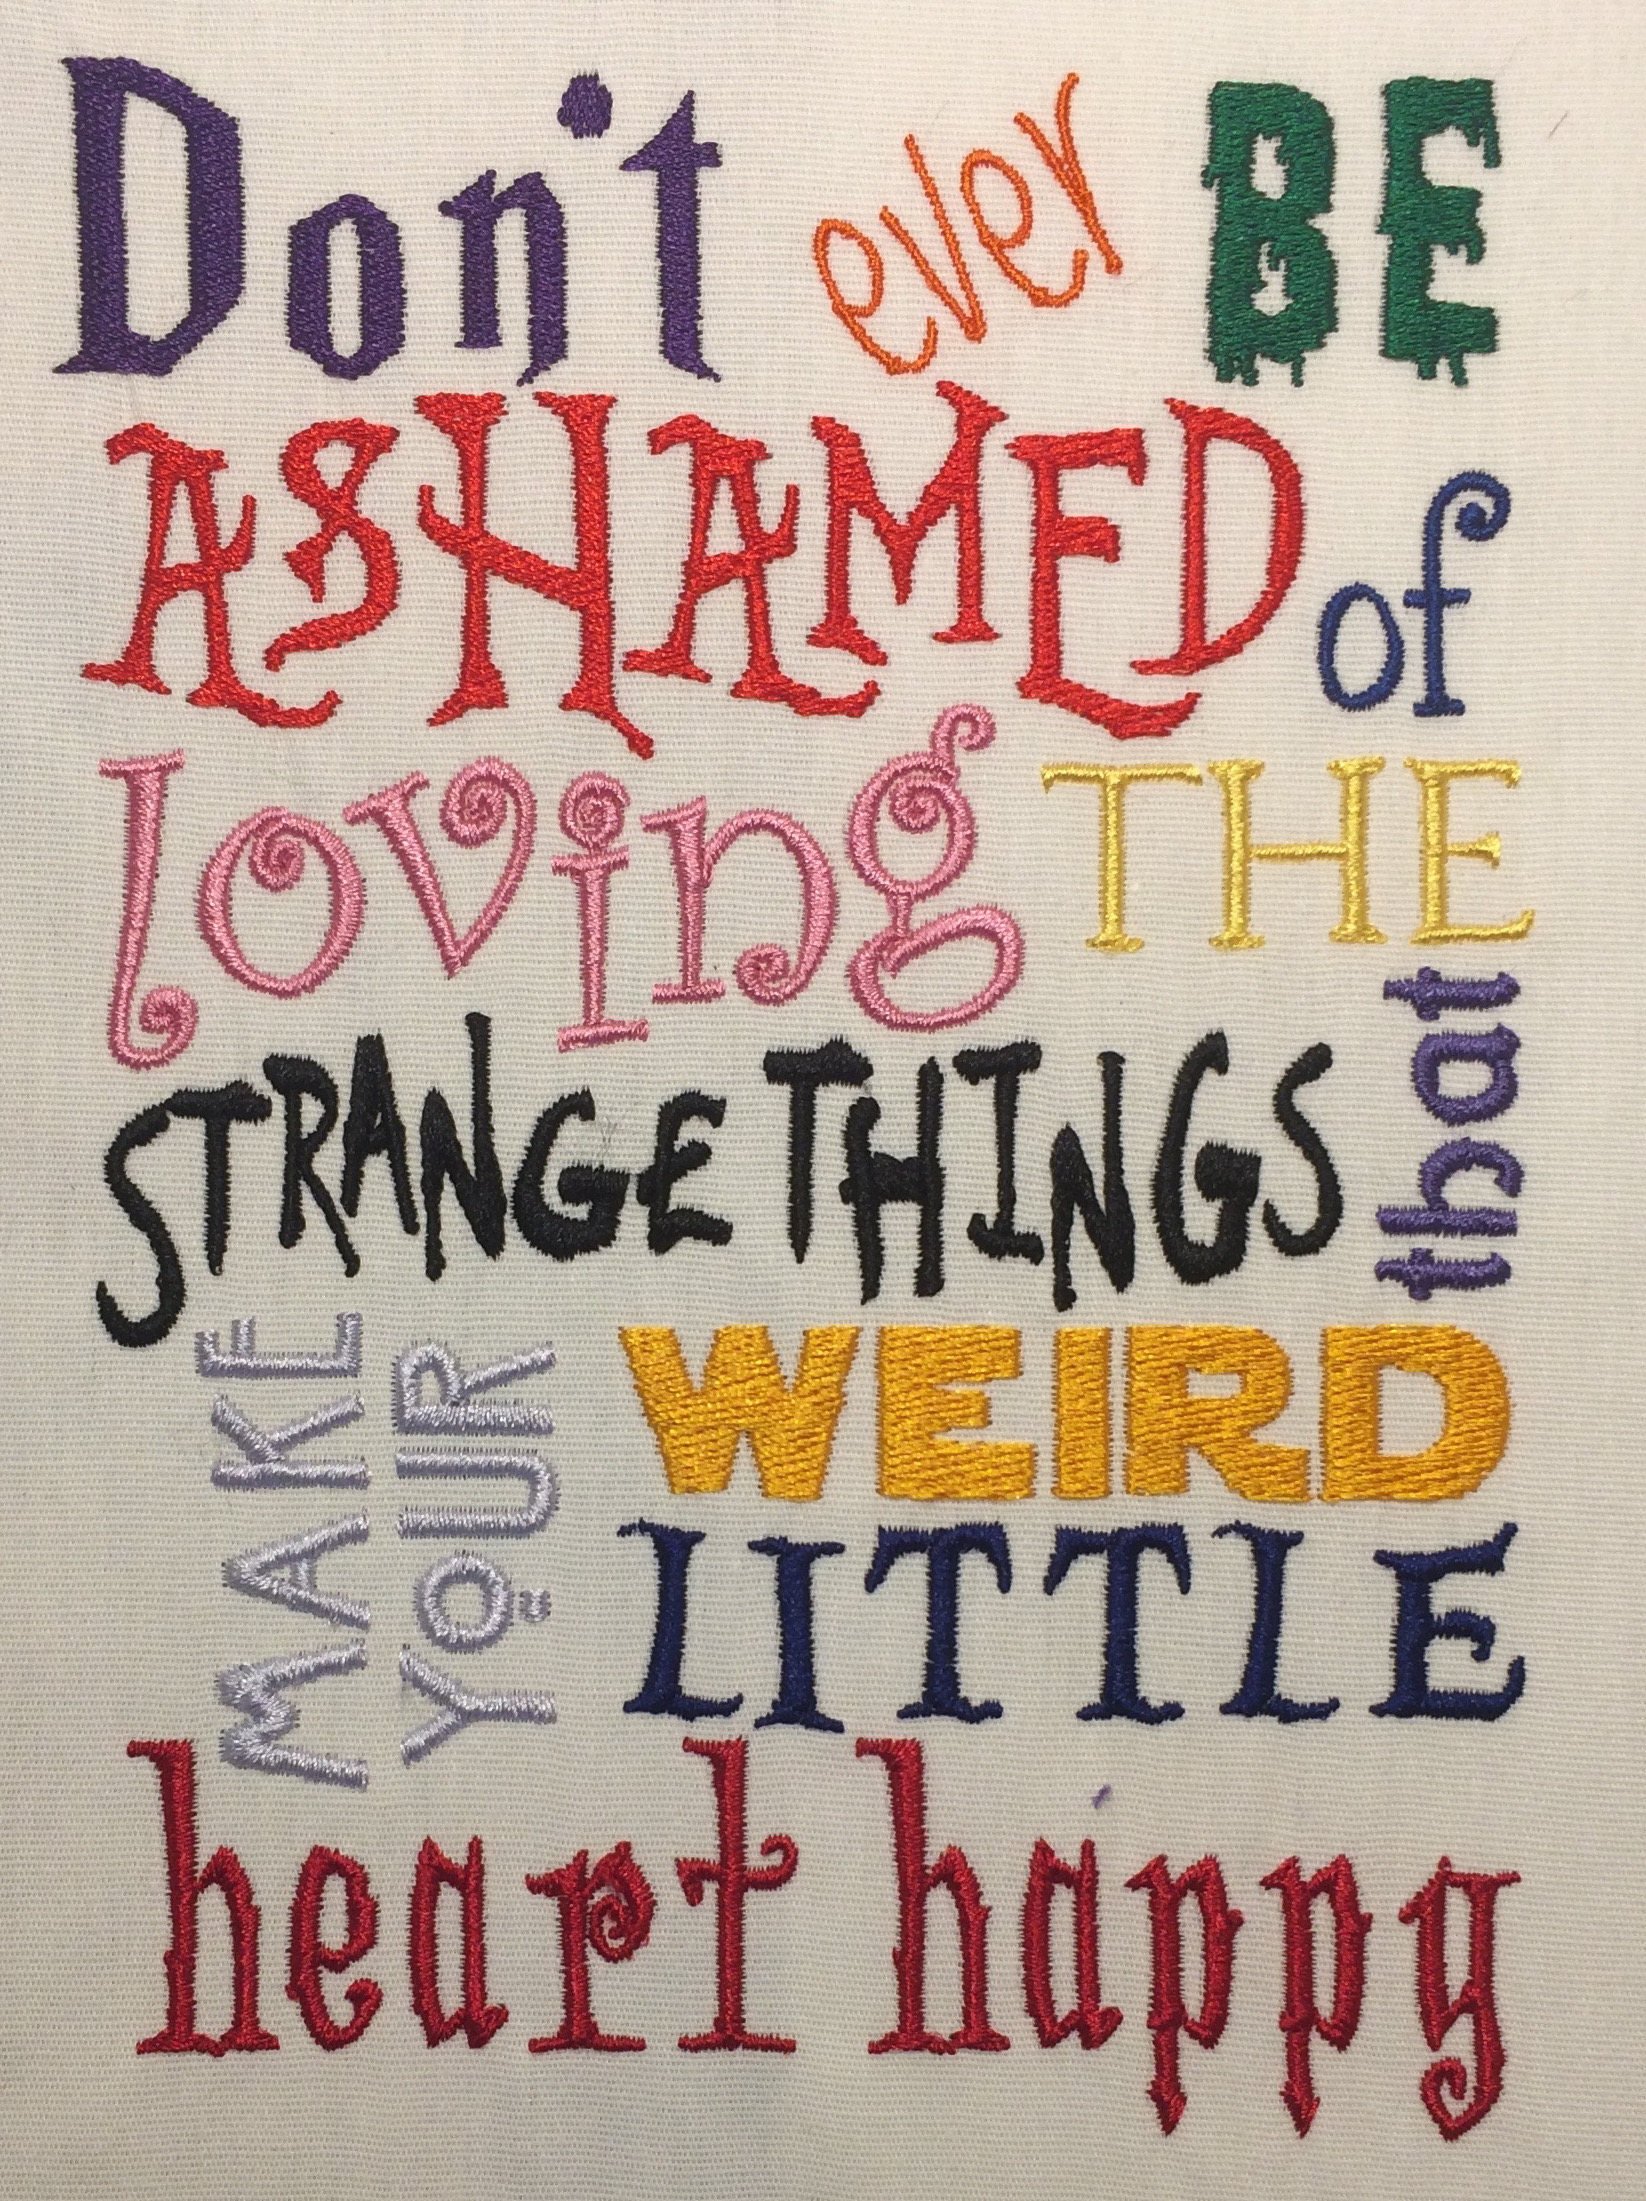 Don't ever BE
ASHAMED of
loving THE
STRANGE THINGS
that
MAKE
YOUR
WEIRD
LITTLE
heart happy